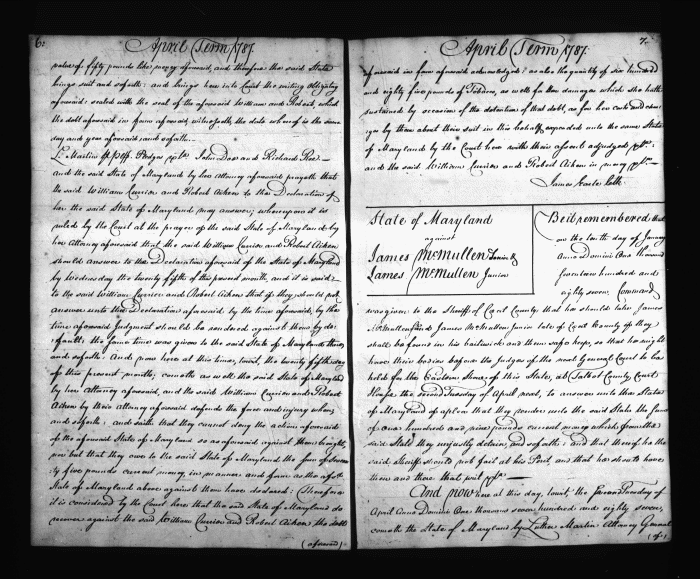 6.
April Term 1787.
value of fifty pounds like money aforesaid, and therefore the said State
brings suit and so forth; and brings here into Court the writing obligatory
aforesaid sealed with the seal of the aforesaid William and Robert, which
the debt aforesaid in form aforesaid witnesseth, the date whereof is the same
day and year aforesaid and so forth
L. Martin Pledges John Doe and Richard Roe
and the said State of Maryland by her Attorney aforesaid prayeth that
the said William Currier and Robert Aiken to the Declaration of
her the said State of Maryland may answer; whereupon it is
ruled by the Court at the prayer of the said State of Maryland by
her Attorney aforesaid that the said William Currier and Robert Aiken
should answer to the Declaration aforesaid of the State of Maryland
by Wednesday the twenty fifth of this present month, and it is said
to the said William Currier and Robert Aiken that if they should not
answer unto the Declaration aforesaid by the time aforesaid, by the
time aforesaid Judgment should be rendered against them by de-
fault: the same time was given to the said State of Maryland then,
and so forth. And now here at this time, towit, the twenty fifth day
of this present month, cometh as well the said State of Maryland
by her Attorney aforesaid, and the said William Currier and Robert
Aiken by their Attorney aforesaid defends the force and injury when
and so forth, and saith that they cannot deny the action aforesaid
of the aforesaid State of Maryland so as aforesaid against them brought,
nor but that they owe to the said State of Maryland the sum of seven
ty five pounds current money in manner and form as the
State of Maryland above against them have declared: Therefore
it is considered by the Court here that the said State of Maryland do
recover against the said William Currier and Robert Aiken the debt
(aforesaid)
7.
April Term 1787.
aforesaid in form aforesaid acknowledged; as also the quantity of six hundred
and eighty five pounds of Tobacco, as well for the damages which she hath
sustained by occasion of the detention of that debt, as for her costs and char
ges by them about their suit in this behalf expended unto the same State
of Maryland by the Court here with their assent adjudged
and the said William Currier and Robert Aiken in mercy
James Earle Clk.
State of Maryland
against
James McMullen Senior &
James McMullen Junior
Be it remembered that
on the tenth day of January
Anno Domini One thousand
seven hundred and
eighty seven, Command
was given to the Sheriff of Cecil County that he should take James
McMullen and James McMullen Junior late of Cecil County if they
shall be found in his bailiwick and them safe keep, so that he might
have their bodies before the Judges of the next General Court to be
held for the Eastern Shore of this State, at Talbot County Court
House, the second Tuesday of April next, to answer unto the State
of Maryland of a plea that they render unto the said State the sum
of one hundred and nine pounds current money which from the
said State they unjustly detain and so forth; and that thereof he the
said Sheriff should not fail at his Peril, and that he should have
then and there that writ
And now here at this day, towit, the second Tuesday of
April Anno Domini One thousand seven hundred and eighty seven,
cometh the State of Maryland by Luther Martin Attorney General
(of)